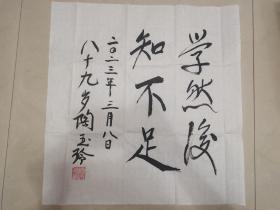 学然後
知不足
二〇二三年三月八日
八十九岁陶玉玲